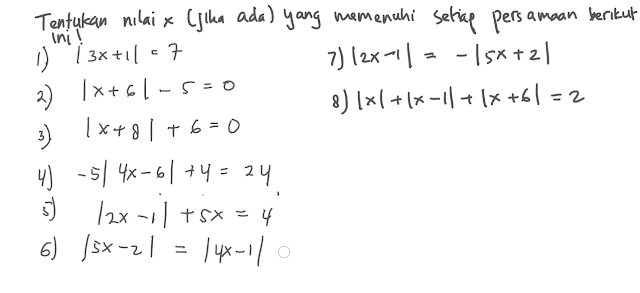 Tentukan nilai x (jika ada) yang memenuhi setiap persamaan berikut
ini!
1) |3x+1| = 7
2) |x+6| - 5 = 0
3) |x+8| + 6 = 0
4) -5|4x-6| + 4 = 24
5) |2x-1| + 5x = 4
6) |5x-2| = |4x-1|
7) |2x-1| = -|5x+2|
8) |x| + |x-1| + |x+6| = 2